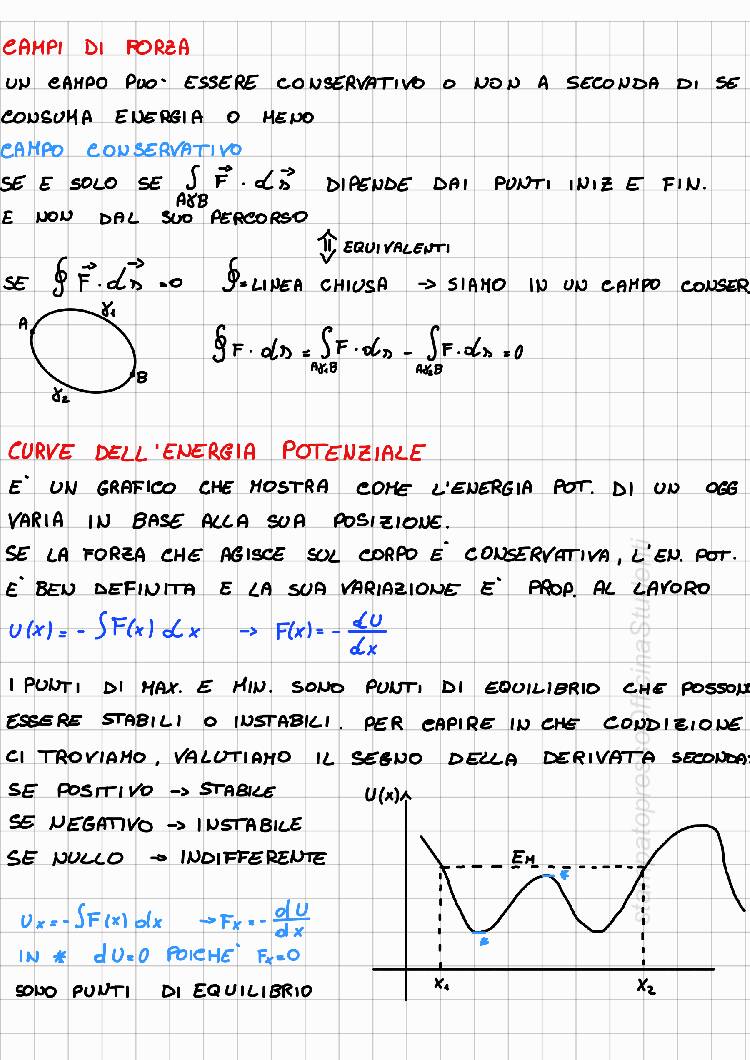 CAMPI DI FORZA
UN CAMPO PUO' ESSERE CONSERVATIVO O NON A SECONDA DI SE
CONSUMA ENERGIA O MENO
CAMPO CONSERVATIVO
SE E SOLO SE ∫AγB F⃗ · ds⃗ DIPENDE DAI PUNTI INIZ E FIN.
E NON DAL SUO PERCORSO
⇕ EQUIVALENTI
SE ∮ F⃗ · ds⃗ = 0 ∮ = LINEA CHIUSA → SIAMO IN UN CAMPO CONSER
A γ₁ B γ₂
∮ F · ds = ∫Aγ₁B F · ds - ∫Aγ₂B F · ds = 0
CURVE DELL'ENERGIA POTENZIALE
E' UN GRAFICO CHE MOSTRA COME L'ENERGIA POT. DI UN OGG
VARIA IN BASE ALLA SUA POSIZIONE.
SE LA FORZA CHE AGISCE SUL CORPO E' CONSERVATIVA, L'EN. POT.
E' BEN DEFINITA E LA SUA VARIAZIONE E' PROP. AL LAVORO
U(x) = - ∫F(x) dx → F(x) = - dU/dx
I PUNTI DI MAX. E MIN. SONO PUNTI DI EQUILIBRIO CHE POSSON
ESSERE STABILI O INSTABILI. PER CAPIRE IN CHE CONDIZIONE
CI TROVIAMO, VALUTIAMO IL SEGNO DELLA DERIVATA SECONDA:
SE POSITIVO → STABILE
SE NEGATIVO → INSTABILE
SE NULLO → INDIFFERENTE
Ux = - ∫F(x) dx → Fx = - dU/dx
IN * dU=0 POICHE' Fx=0
SONO PUNTI DI EQUILIBRIO
U(x)
EM
*
*
x₁ x₂